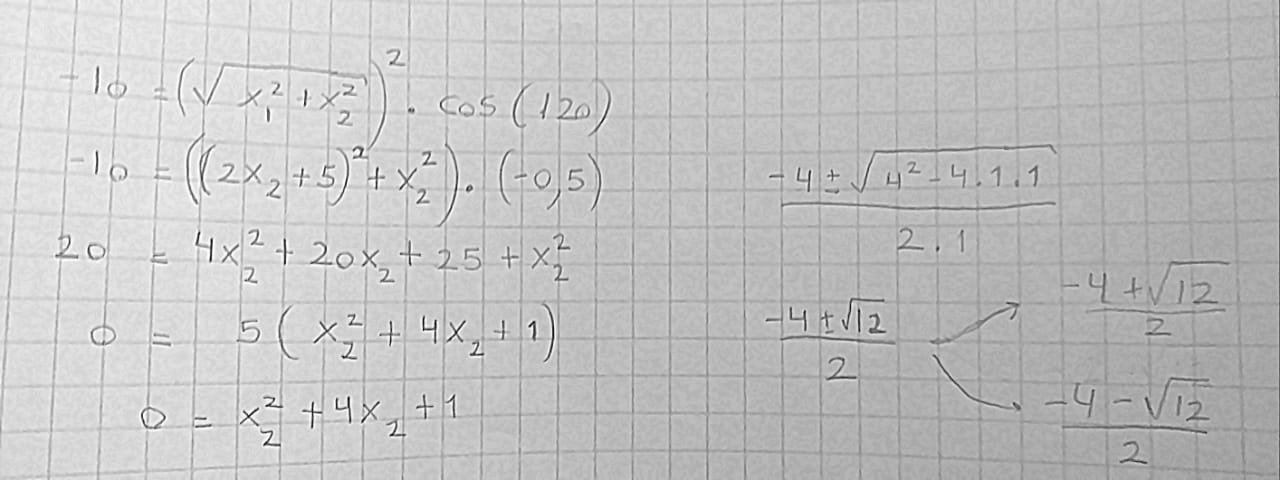 -10 = (√(x₁² + x₂²))² · cos(120)
-10 = ((2x₂ + 5)² + x₂²) · (-0,5)
20 = 4x₂² + 20x₂ + 25 + x₂²
0 = 5(x₂² + 4x₂ + 1)
0 = x₂² + 4x₂ + 1
(-4 ± √(4² - 4.1.1)) / (2.1)
(-4 ± √12) / 2
(-4 + √12) / 2
(-4 - √12) / 2